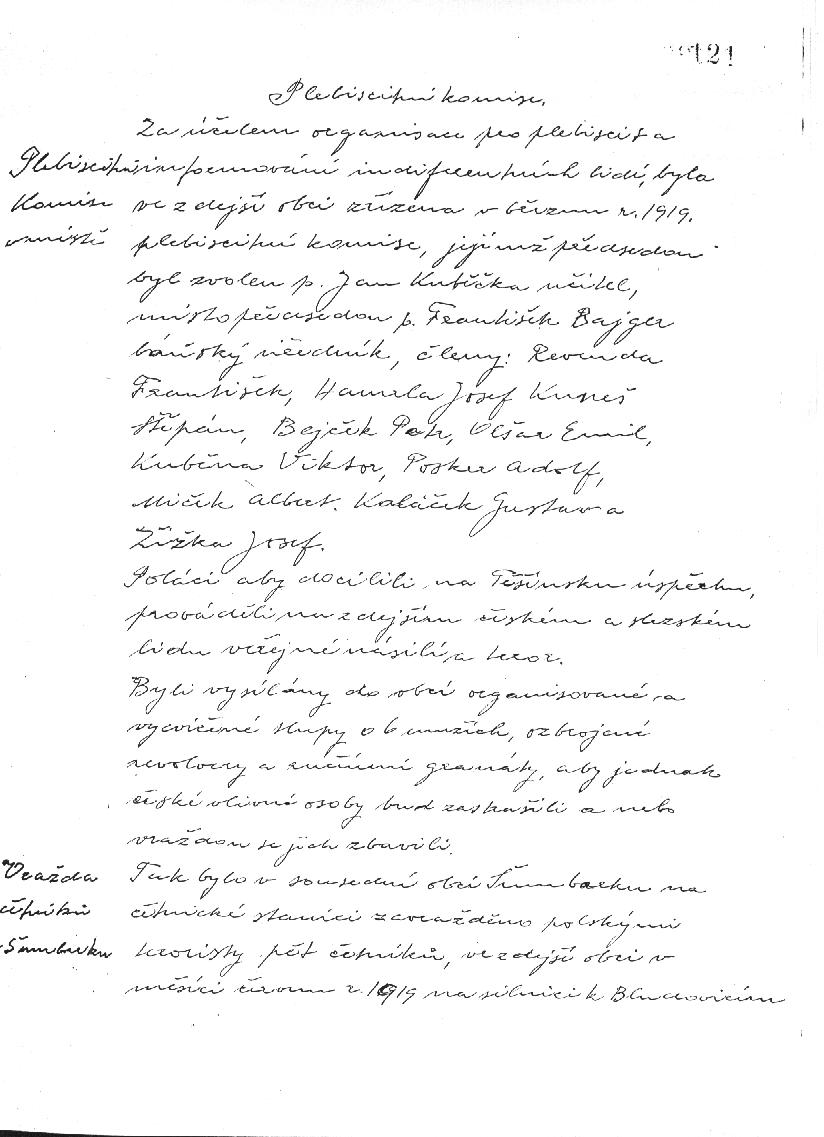 121
Plebiscitní komise.
Za účelem organisace pro plebiscit a
Plebiscitní informování indiferentních lidí, byla
Komise ve zdejší obci zřízena v březnu r. 1919.
v místě plebiscitní komise, jejímž předsedou
byl zvolen p. Jan Kubíčka učitel,
místopředsedou p. František Bajger
báňský úředník, členy: Revenda
František, Hamrla Josef Kuneš
Štěpán, Bejček Petr, Olšar Emil,
Kuběna Viktor, Posker Adolf,
Miček Albert. Kaláček Gustav a
Žižka Josef.
Poláci aby docílili na Těšínsku úspěchu,
prováděli na zdejším českém a slezském
lidu veřejné násilí a teror.
Byli vysílány do obcí organisované a
vycvičené tlupy o 6 mužích, ozbrojení
revolvery a ručními granáty, aby jednak
české vlivné osoby buď zastrašili a nebo
vraždou se jich zbavili.
Vražda Tak bylo v sousední obci Šumbarku na
četníků četnické stanici zavražděno polskými
v Šumbarku teroristy pět četníků, ve zdejší obci v
měsíci červnu r. 1919 na silnici k Bludovicím